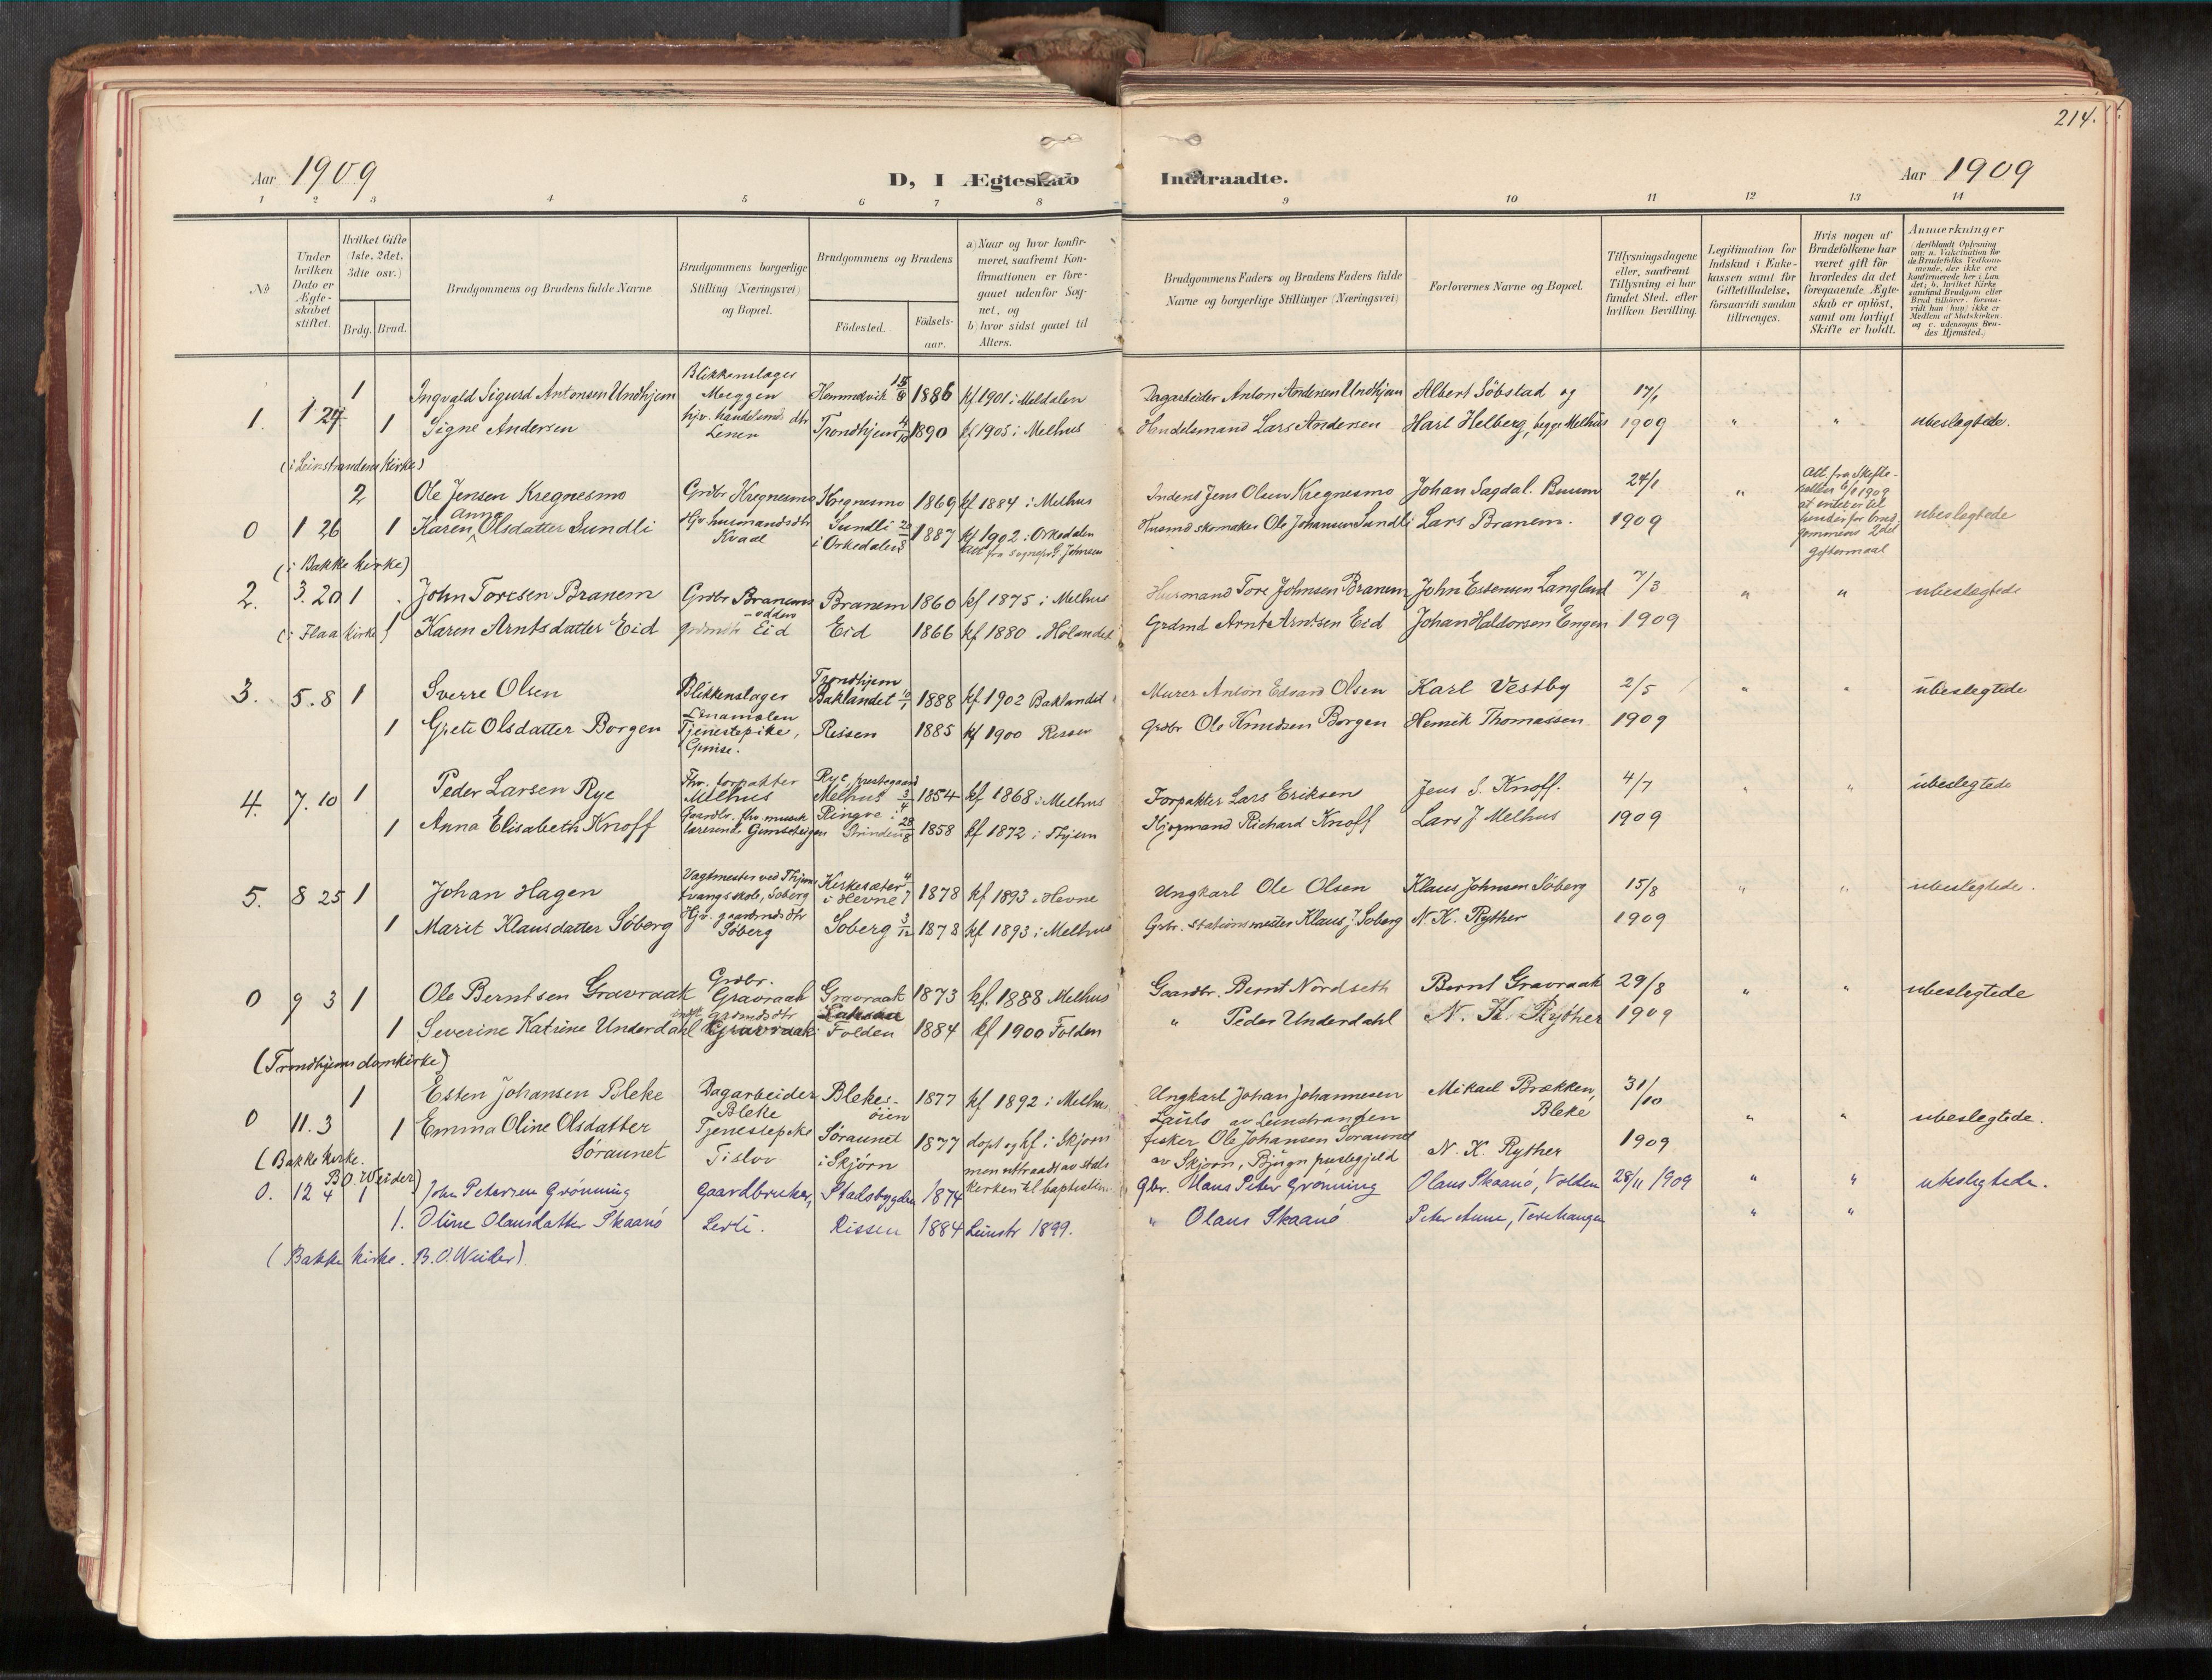 214.
Aar 1909
D, I Ægteskab
Indtraadte.
Aar 1909
1 2 3 4 5 6 7 8 9 10 11 12 13 14
No
Under hvilken Dato er Ægteskabet stiftet.
Hvilket Gifte (1ste, 2det, 3die osv.)
Brdg. Brud.
Brudgommens og Brudens fulde Navne
Brudgommens borgerlige Stilling (Næringsvei) og Bopæl.
Brudgommens og Brudens
Fødested.
Fødselsaar.
a) Naar og hvor konfirmeret, saafremt Konfirmationen er foregaaet udenfor Sognet, og
b) hvor sidst gaaet til Alters.
Brudgommens Faders og Brudens Faders fulde Navne og borgerlige Stillinger (Næringsvei)
Forlovernes Navne og Bopæl.
Tillysningsdagene eller, saafremt Tillysning ei har fundet Sted, efter hvilken Bevilling.
Legitimation for Indskud i Enkekassen samt for Giftetilladelse, forsaavidt saadan tiltrænges.
Hvis nogen af Brudefolkene har været gift før hvorledes da det foregaaende Ægteskab er opløst, samt om lovligt Skifte er holdt.
Anmærkninger (deriblandt Oplysning om: a. Vaccination for de Brudefolks Vedkommende, der ikke ere konfirmerede her i Landet; b. hvilket Kirkesamfund Brudgom eller Brud tilhører, forsaavidt han (hun) ikke er Medlem af Statskirken, og c. udensogns Brudes Hjemsted.)
Blikkenslager
1 Ingvald Sigurd Antonsen Undhjem Meeggen Hemmdvik 1886 kf 1901 i Meldalen Dagarbeider Anton Andersen Undhjem Albert Söbstad og 17/1
1. 1 24 1 Signe Andersen hjv. handelsmd dtr Leren Trondhjem 4/10 1890 kf 1905 i Melhus Handelsmand Lars Andersen Karl Helberg, begge Melhus 1909 " " ubeslegtede.
(i Leinstrandens Kirke)
2 Ole Jensen Kregnesmo Grdbr Kregnesmo Kregnesmo 1869 kf 1884 i Melhus Inderst Jens Olsen Kregnesmo Johan Sagdal. Buum 24/1 " Att. fra Skifteretten 6/1 1909
0 1 26 1 Karen Anna Olsdatter Sundli Hjv husmandsdtr Kvaal Sundli i Orkedalen 1887 kf 1902 i Orkedalen Att fra sognepr. G Johnsen Husmd skomaker Ole Johansen Sundli Lars Branem. 1909 at intet er til hinder for brudgommens 2det giftermaal ubeslegtede
(i Bakke kirke)
2. 3. 20 1 John Toresen Branem Grdbr Branemsodden Branem 1860 kf 1875 i Melhus Husmand Tore Johnsen Branem John Estensen Langland 7/3 " " ubeslegtede
(i Flaa Kirke) 1 Karen Arntsdatter Eid grdmdtr Eid Eid 1866 kf 1880 Hölandet Grdmd Arnt Arntsen Eid Johan Haldorsen Engen 1909
3. 5. 8 1 Sverre Olsen Blikkenslager Trondhjem Baklandet 10/1 1888 kf 1902 Baklandet Murer Anton Edvard Olsen Karl Vestby 2/5 " " ubeslegtede
1 Grete Olsdatter Borgen Tjenestepike, Gimse. Rissen 1885 kf 1900 Rissen grdbr Ole Knudsen Borgen Henrik Thomassen 1909
4. 7. 10 1 Peder Larsen Rye Fhv. forpakter Melhus Rye, prestegaard Melhus 3/4 1854 kf 1868 i Melhus Forpakter Lars Eriksen Jens S. Knoff. 4/7 " " ubeslegtede
1 Anna Elisabeth Knoff Gaardbr. fhv. musik lærerinde Gimseheigen Ringve i Strinden 28/8 1858 kf 1872 i Thjem Kjøpmand Richard Knoff Lars J Melhus 1909
5. 8 25 1 Johan Hagen Vagtmester ved Thjems tvangsskole, Soberg Kirkesæter i Hevne 4/7 1878 kf 1893 i Hevne Ungkarl Ole Olsen Klaus Johnsen Söberg 15/8 " " ubeslegtede.
1 Marit Klausdatter Söberg Hjv. gaardmdsdtr Söberg Soberg 3/12 1878 kf 1893 i Melhus Grbr. stationsmester Klaus J. Soberg N. K. Ryther 1909
0 9 3 1 Ole Berntsen Gravraak Grdbr. Gravraak Gravraak 1873 kf. 1888 Melhus Gaardbr. Bernt Nordseth Bernt Gravraak 29/8 " " ubeslegtede
1 Severine Katrine Underdahl Grdmdsdtr Gravraak Folden 1884 kf 1900 Folden " Peder Underdahl N. K. Ryther 1909
(Trondhjems domkirke)
1 Esten Johansen Bleke Dagarbeider Bleke Blekesöien 1877 kf 1892 i Melhus Ungkarl Johan Johannesen av Leinstranden Mikael Brækken, Bleke 31/10
0 11. 3 1 Emma Oline Olsdatter Söraunet Tjenestepike Tislov Söraunet i Skjörn 1877 döpt og kf. i Skjörn men uttraadt av stats kirken til baptisten fisker Ole Johansen Soraunet av Skjorn, Bjugn prestegjeld N. K. Ryther 1909 " " ubeslegtede.
(Bakke kirke. B. O. Weider)
0. 12 4 1 John Petersen Grönning Gaardbruker, Stadsbygden 1874 Gbr. Hans Peter Grönning Olaus Skaanö, Volden 28/11 1909 " " ubeslegtede.
1. Oline Olausdatter Skaanö Lerli. Rissen 1884 Leinstr 1899. " Olaus Skaanö Peter Aune, Terehaugen " "
(Bakke kirke. B. O. Weider)